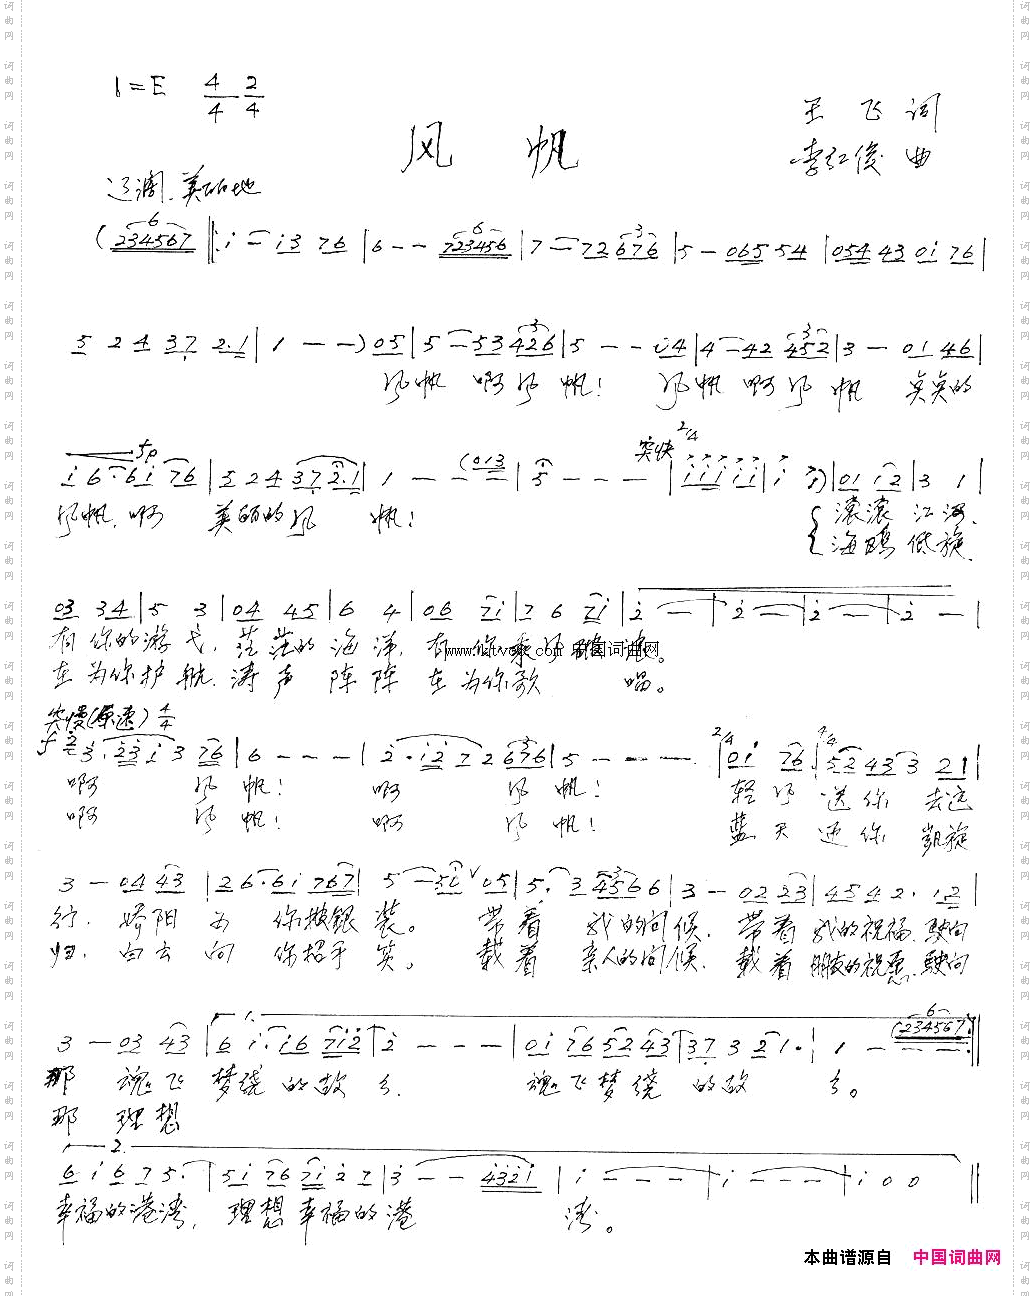 1=E 4/4 2/4
风 帆
王 飞 词
李红俊 曲
辽阔、美丽地
(234567 ‖: i – i3 76 | 6 – – 723456 | 7 – 72 676 | 5 – 065 54 | 054 43 0i 76 |
5 2 4 37 2.1 | 1 – – ) 05 | 5 – 53 426 | 5 – – i4 | 4 – 42 452 | 3 – 01 46 |
风帆 啊风 帆! 风帆 啊风 帆 美美的
i 6 · 6i 76 | 5 2 4 37 2.1 | 1 – – (013 | 5 – – – | 突快 2/4 iii ii | i i) | 01 i2 | 3 1 |
风帆, 啊 美丽的风 帆!
滚滚 江河,
海鸥 低旋,
03 34 | 5 3 | 04 45 | 6 4 | 06 7i | 7 6 7i | 2 – | 2 – | 2 – | 2 – |
有你的游弋, 茫茫的海洋, 有你乘风
在为你护航, 涛声阵阵 在为你歌 唱。
突慢(原速) 4/4
f 3 · 23 i 3 76 | 6 – – – | 2 · i2 7 2 676 | 5 – – – | 2/4 0i 76 | 4/4 52 43 3 21 |
啊 风帆! 啊 风帆! 轻风 送你 去远
啊 风帆! 啊 风帆! 蓝天 迎你 凯旋
3 – 04 43 | 26 · 6i 767 | 5 – 5i ∨ 05 | 5 · 3 456 6 | 3 – 02 23 | 45 4 2 · 12 |
行, 娇阳 为 你披银 装。 带着 我的问候, 带着 我的祝福, 驶向
归, 白云 向 你招手 笑。 载着 亲人的问候, 载着 朋友的祝愿, 驶向
3 – 03 43 | 1. 6 i · i6 7i2 | 2 – – – | 0i 76 52 43 | 37 3 21 · | 1 – – (234567 :‖
那 魂飞 梦绕 的故 乡, 魂飞梦绕 的故 乡。
那 理想
2. 6 i 6 7 5 · | 5i 76 7i 2 7 | 3 – – 4321 | i – – – | i – – – | i 0 0 ‖
幸福的港湾, 理想幸福的港 湾。
本曲谱源自 中国词曲网